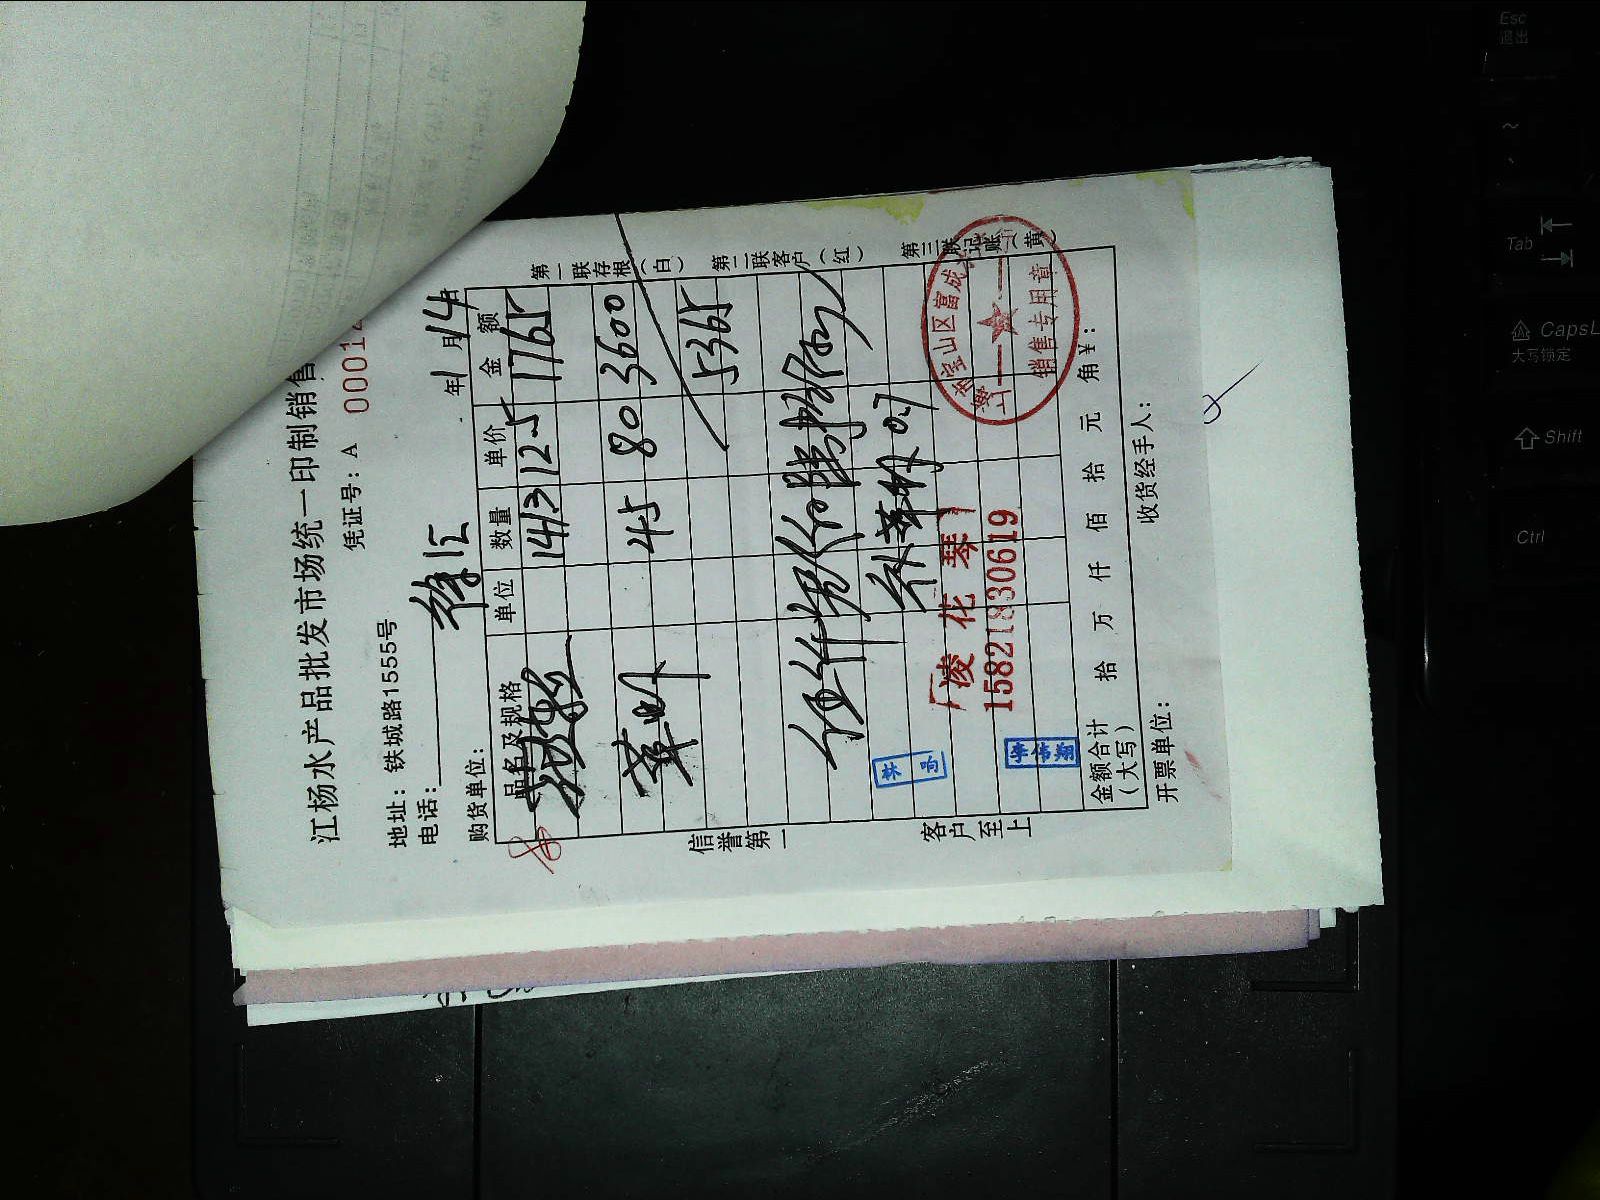 江杨水产品批发市场统一印制销售
凭证号：A 00012
地址：铁城路1555号
电话：
年1月14日
购货单位：徐汇
品名及规格 单位 数量 单价 金额
1413 125 1765
草虾 45 80 3600
5365
伍仟叁佰
补草虾 0.7
「凌花琴」
15821830619
林响
李伟翔
宝山区富成
销售专用章
金额合计
（大写） 拾 万 仟 佰 拾 元 角 ¥：
开票单位： 收货经手人：
信誉第一
客户至上
第一联存根（白）
第二联客户（红）
第三联记账（黄）
Esc
退出
~
Tab
CapsL
大写锁定
Shift
Ctrl